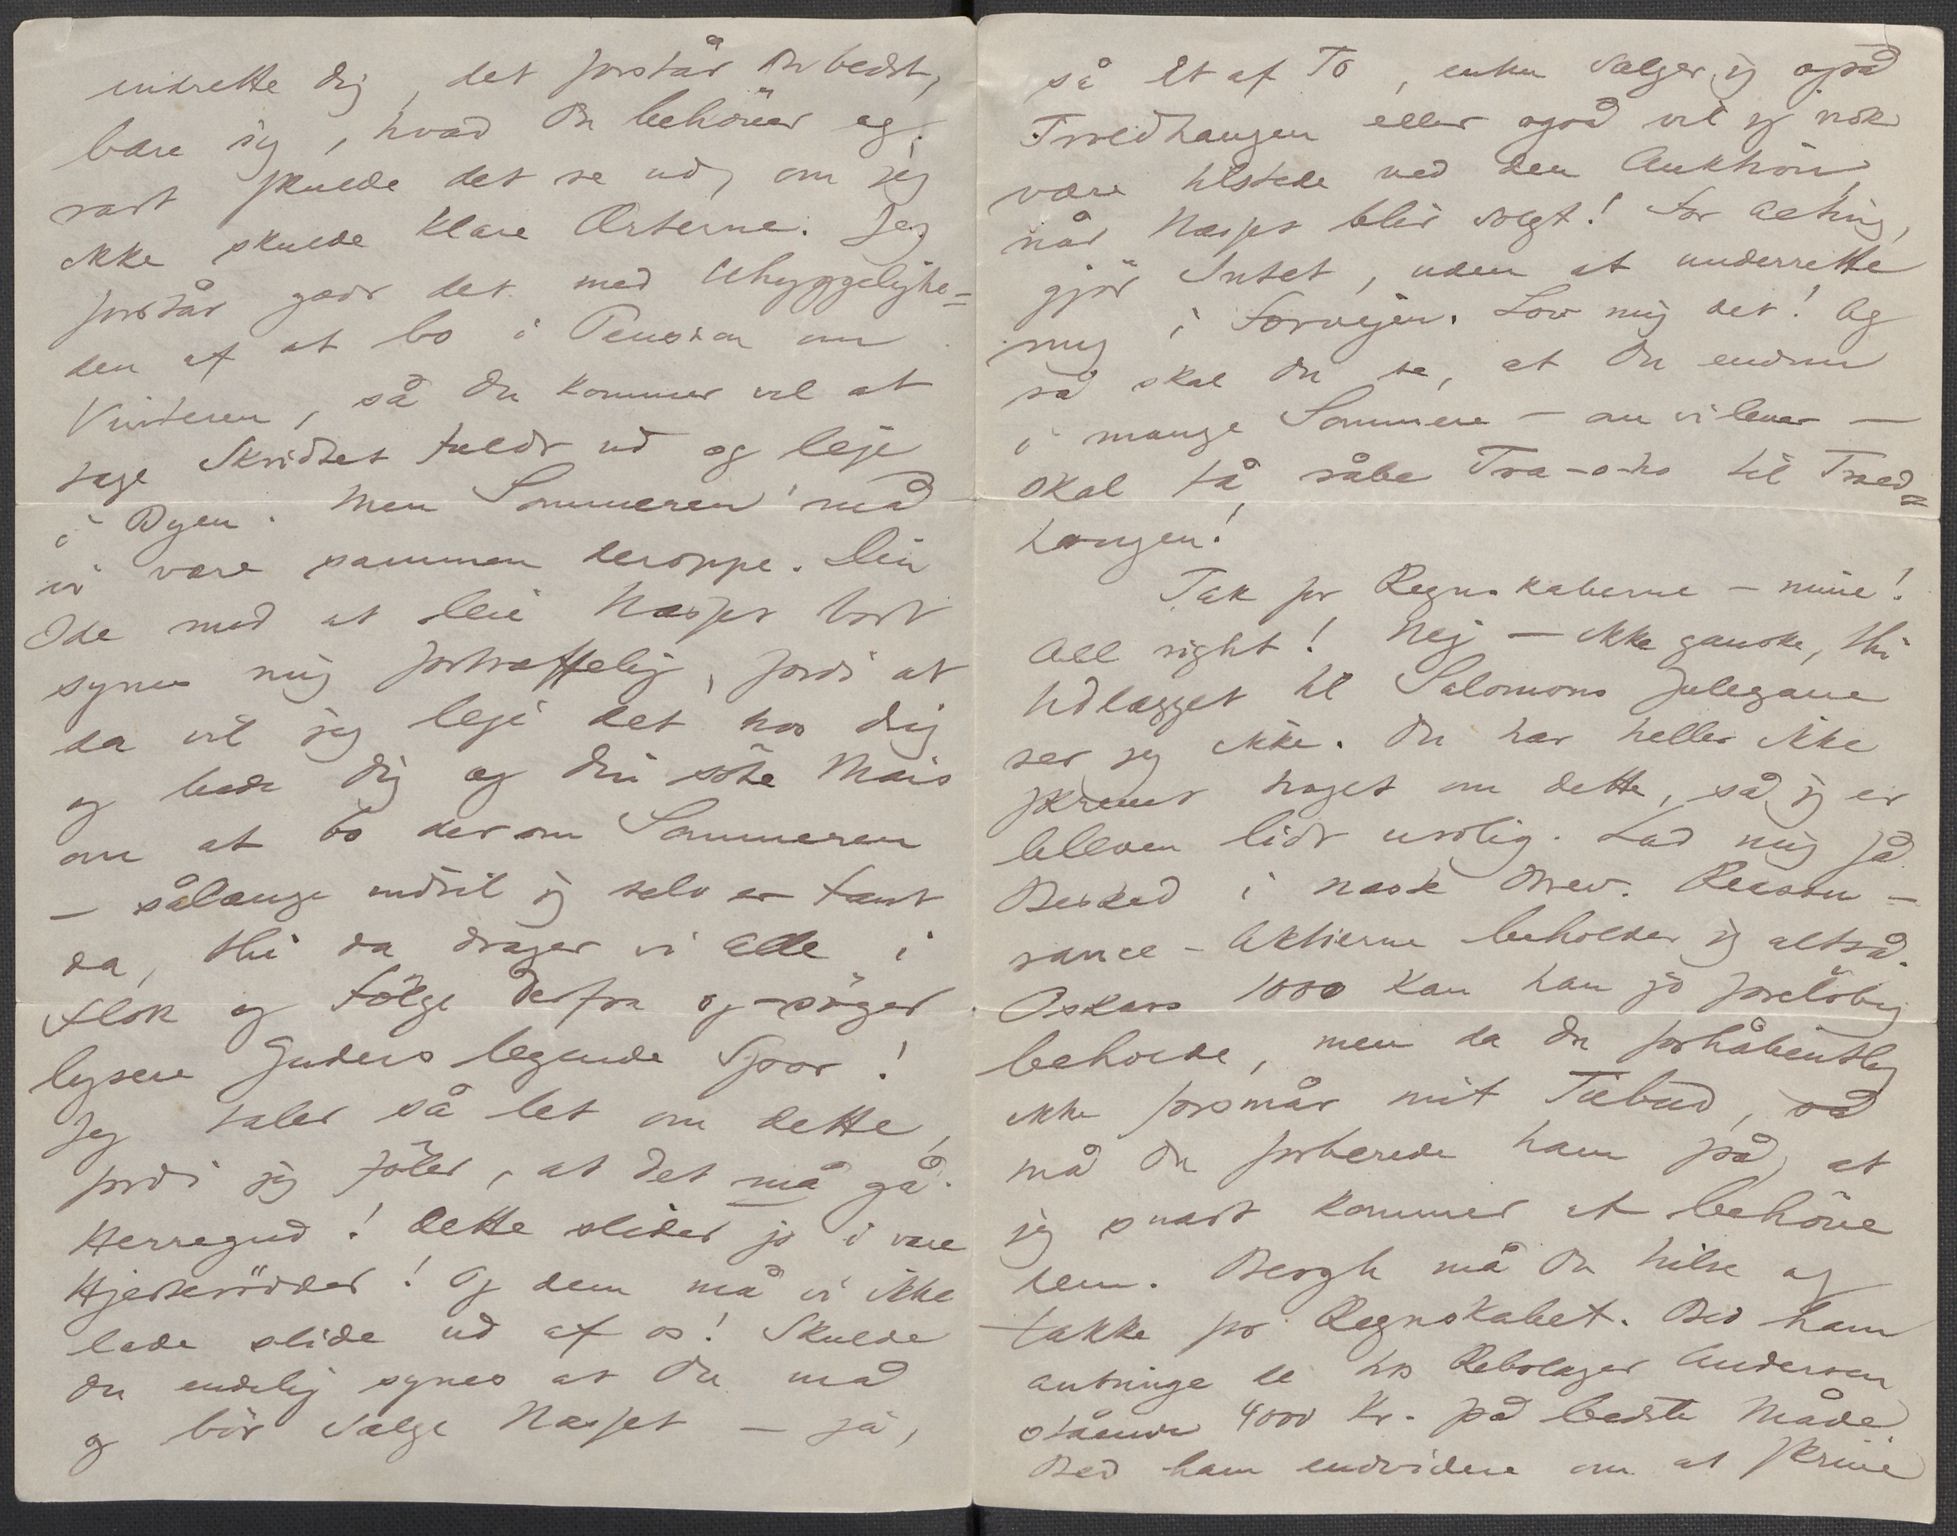 indrette dig, det forstår Du bedst,
bare sig, hvad Du behöver og
rart skulde det se ud, om jeg
ikke skulde klare Ærterne. Jeg
forstår godt det med Uhyggelighe=
den af at bo i Pension om
Vinteren, så Du kommer vel at
tage Skridtet fuldt ud og leje
i Byen. Men Sommeren må
vi være sammen deroppe. Din
Ide med at leie Næsset bort
synes mig fortræffelig, fordi at
da vil jeg leje det hos dig
og bede dig og din söte Mais
om at bo der om Sommeren
– sålænge indtil jeg selv er fant
da, thi da drager vi alle i
Flok og Fölge derfra og söger
lysere Guders legende Spor!
Jeg taler så let om dette,
fordi jeg föler, at det må gå.
Herregud! Dette slider jo i vare
Hjerterödder! Og dem må vi ikke
lade slide ud af os! Skulde
du endelig synes at Du må
og bör sælge Næsset – ja,
så Et af To, enten sælger jeg også
Troldhaugen eller også vil jeg nok
være tilstede ved den Auktion,
når Næsset blir solgt! For alting,
gjör Intet, uden at underrette
mig i Forvejen. Lov mig det! Og
så skal Du se, at Du endnu
i mange Sommere – om vi lever –
skal få råbe Tra-o-ho til Trold=
haugen!
Tak for Regnskaberne – mine!
All right! Nej – ikke ganske, thi
Udlægget til Salomons Julegave
ser jeg ikke. Du har heller ikke
skrevet noget om dette, så jeg er
bleven lidt urolig. Lad mig få
Besked i næste Brev. Reassu-
rance-Aktierne beholder jeg altså.
Oskars 1000 kan han jo foreløbig
beholde, men da Du forhåbentlig
ikke forsmår mit Tilbud, så
må Du forberede ham på, at
jeg snart kommer at behöve
dem. Bergh må Du hilse og
takke for Regnskabet. Bed ham
anbringe de hos Rebslager Andersen
stående 4000 Kr. på bedste Måde.
Bed ham endvidere om at skrive